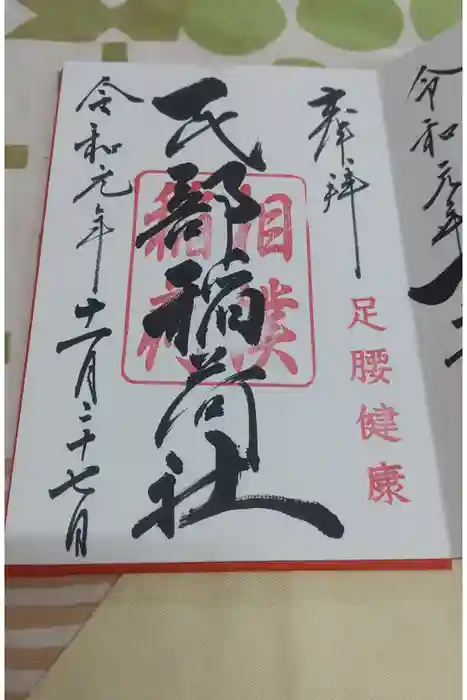 奉拝
足腰健康
民部稲荷社
相撲
稲荷
令和元年十二月二十七日
令和元年